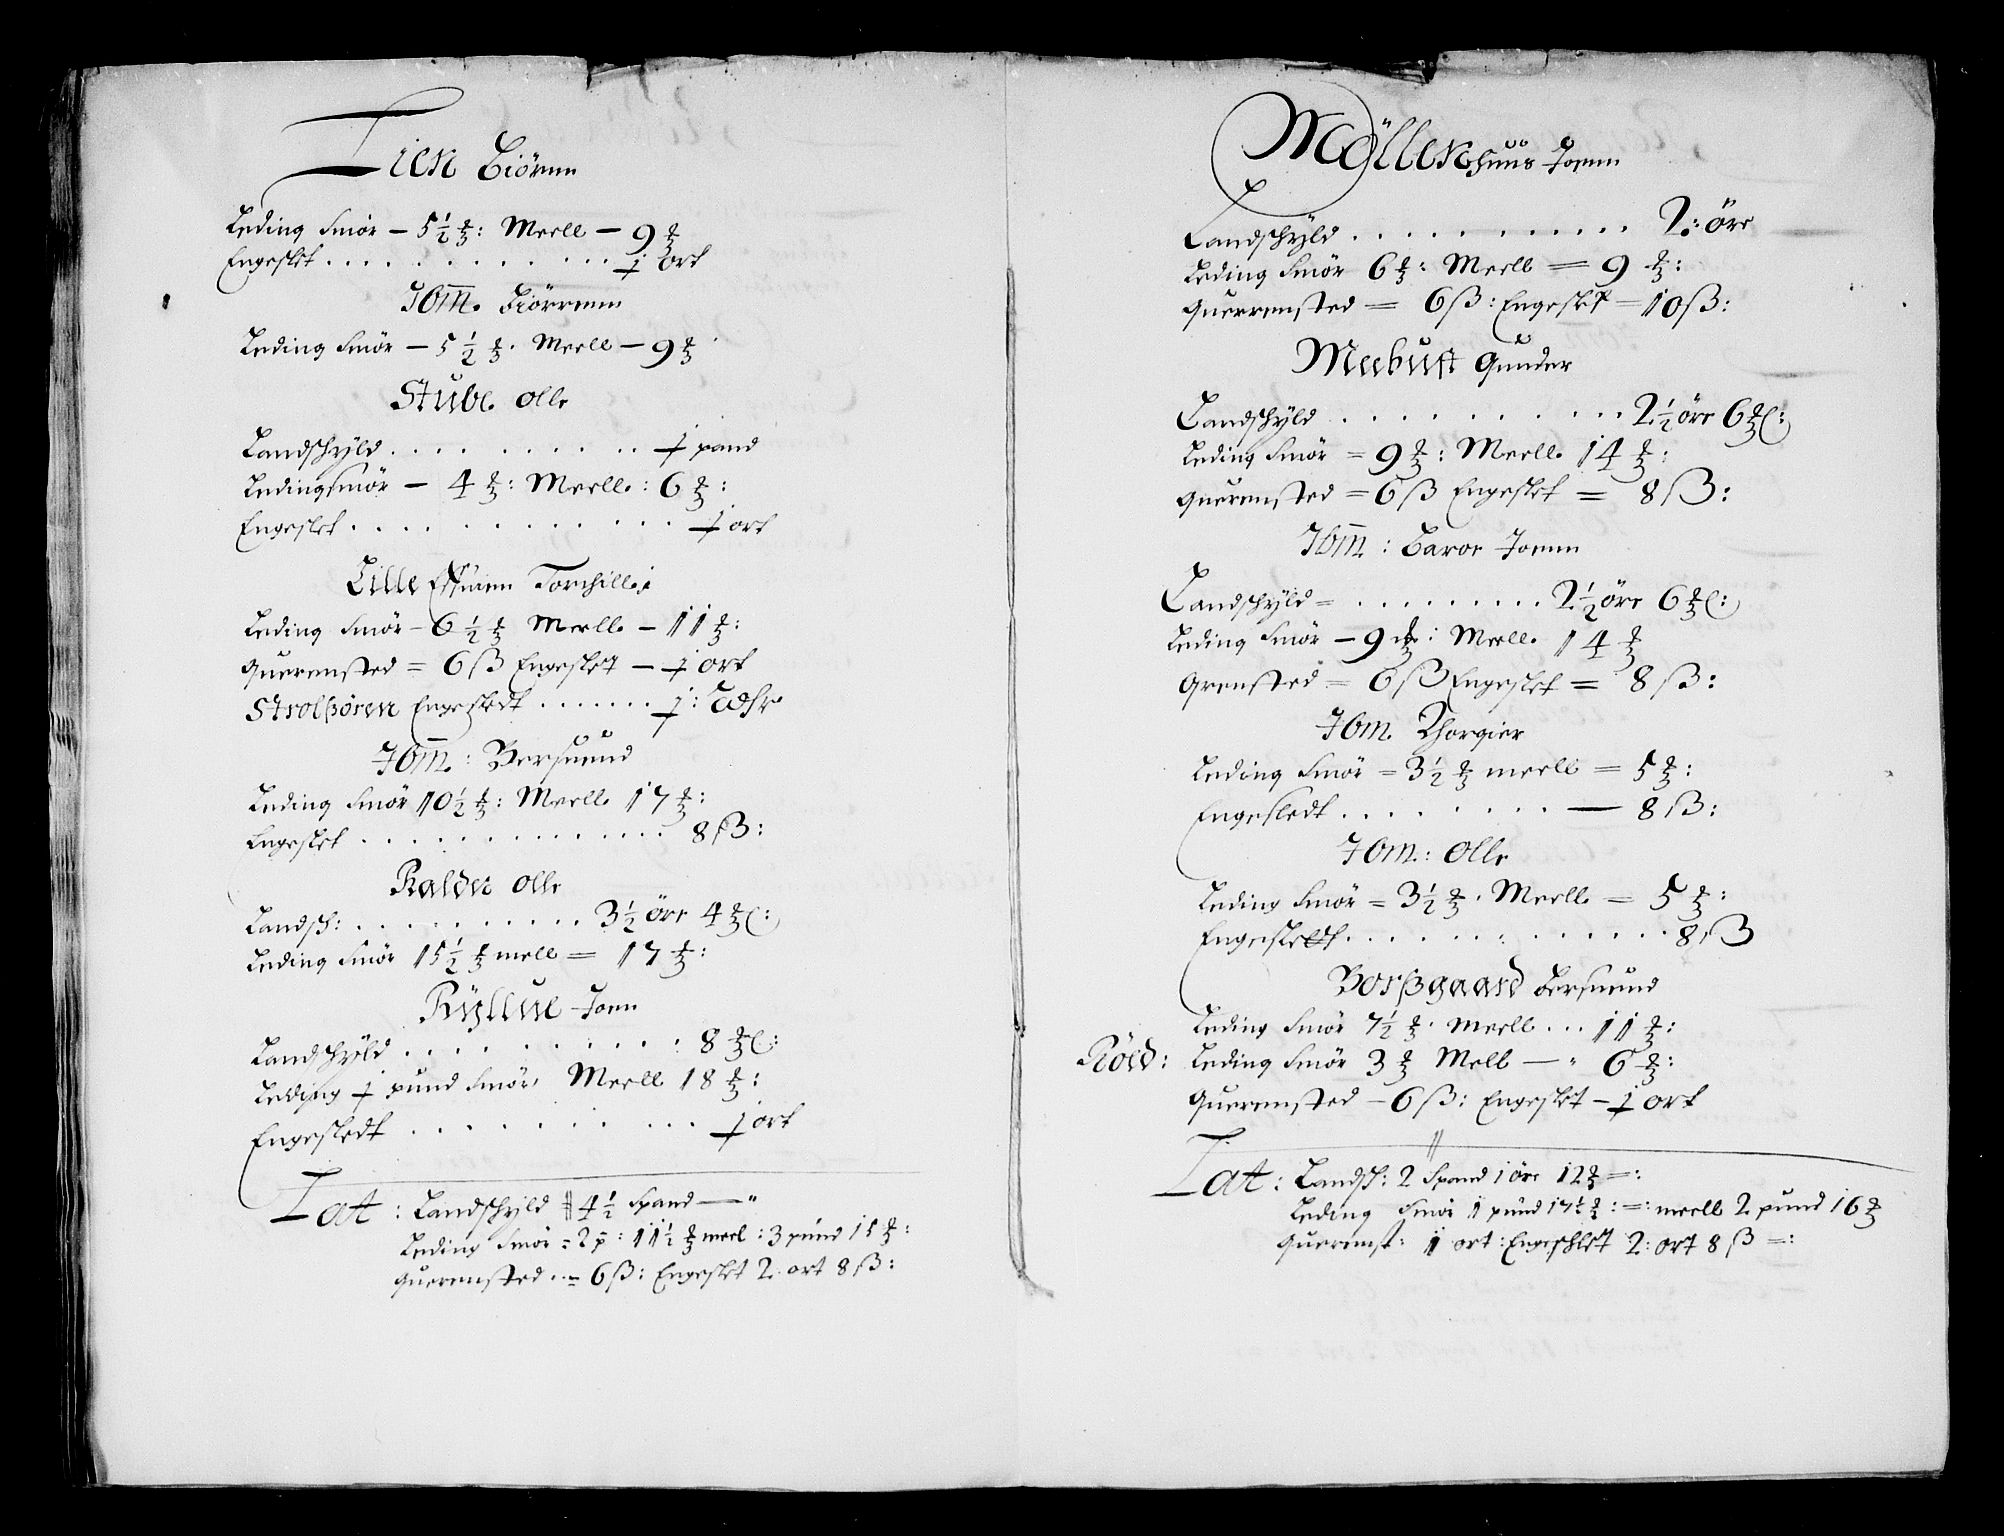 Tien Biörnn
Leding Smör – 5½ ℔: Meell – 9 ℔
Engeslet . . . . . . . . . . j ort
Ibm. Biörnnn
Leding Smör – 5½ ℔. Meell – 9 ℔
Stube Olle
Landschyld . . . . . . . . . j pand
Ledingsmör – 4 ℔: Meell: 6 ℔:
Engeslet . . . . . . . . . . j ort
Lille Tornhille:
Leding Smör – 6½ ℔ Meell – 11 ℔:
Querensted = 6 ß Engeslet – j ort
Strolßören Engesledt . . . . . . . j:
Ibm: Bersuend
Leding Smör 10½ ℔: Meell 17 ℔:
Engeslet . . . . . . . . . . . . 8 ß:
Kalden Olle
Landsch: . . . . . . . . . . 3½ öre 4 ℔:
Leding Smör 15½ ℔ mell = 17 ℔:
Kyllue Joen
Landschyld . . . . . . . . . . 8 ℔:
Leding j pund Smör, Meell 18 ℔:
Engesledt . . . . . . . . . j ort
Lat: Landschyld 4½ Spand — "
Leding Smör = 2 p: 11½ ℔ meel: 3 pund 15 ℔:
Querensted . = 6 ß: Engeslet 2 ort 8 ß:
Möllenshuus Joenn
Landschyld . . . . . . . . . . . 2: öre
Leding Smör 6 ℔: Meell = 9 ℔:
Querrensted = 6 ß: Engeslet = 10 ß:
Meebust Gunder
Landschyld . . . . . . . . . . 2½ öre 6 ℔:
Leding Smör = 9 ℔: Meell. 14 ℔:
Querensted = 6 ß Engeslet = 8 ß:
Ibm: Baroe Joenn
Landschyld = . . . . . . . . . 2½ öre 6 ℔:
Leding Smör – 9 ℔: Meell. 14 ℔
Qrensted = 6 ß Engeslet = 8 ß:
Ibm. Thorgier
Leding Smör = 3½ ℔ meell = 5 ℔:
Engesledt . . . . . . . . — 8 ß:
Ibm: Olle
Leding Smör = 3½ ℔. Meell. = 5 ℔:
Engesledt . . . . . . . . . . . 8 ß
Borßgaard Bersuend
Leding Smör 7½ ℔. meell . . . 11 ℔:
Röld: Leding Smör 3 ℔ Mell — " 6 ℔:
Querensted – 6 ß: Engeslet – j ort
Lat: Landsch: 2 Spand 1 öre 12 ℔ =:
Leding Smör 1 pund 17½ ℔: =: meell 2 pund 16 ℔
Querenst: 1 ort: Engeshlet 2: ort 8 ß =: